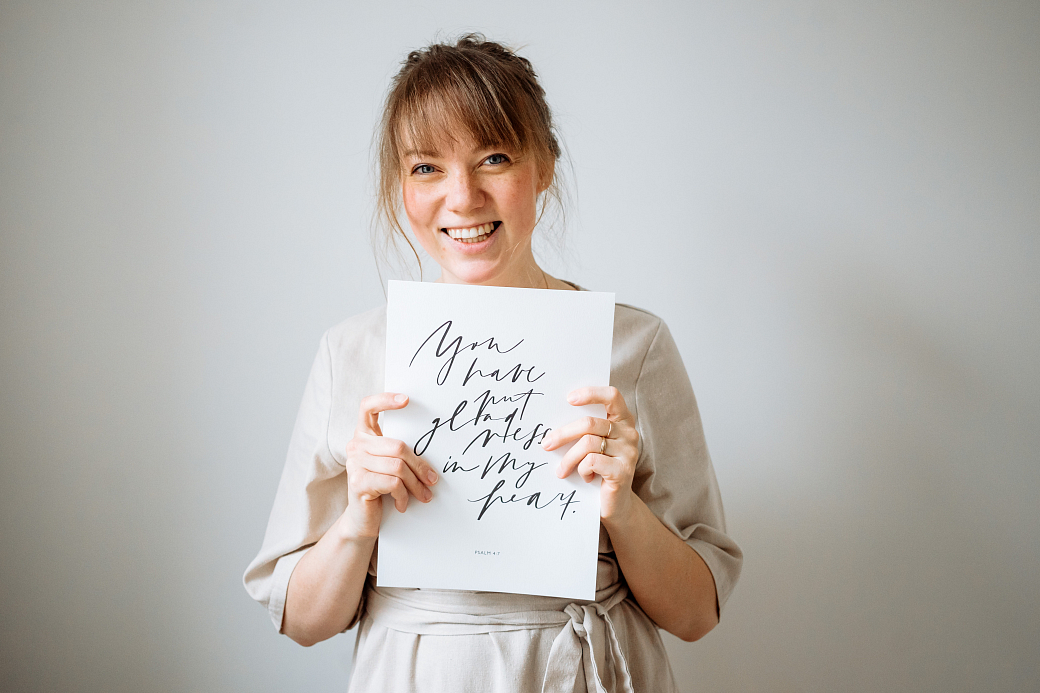 You
have
put
glad
ness
in my
heart.
PSALM 4:7